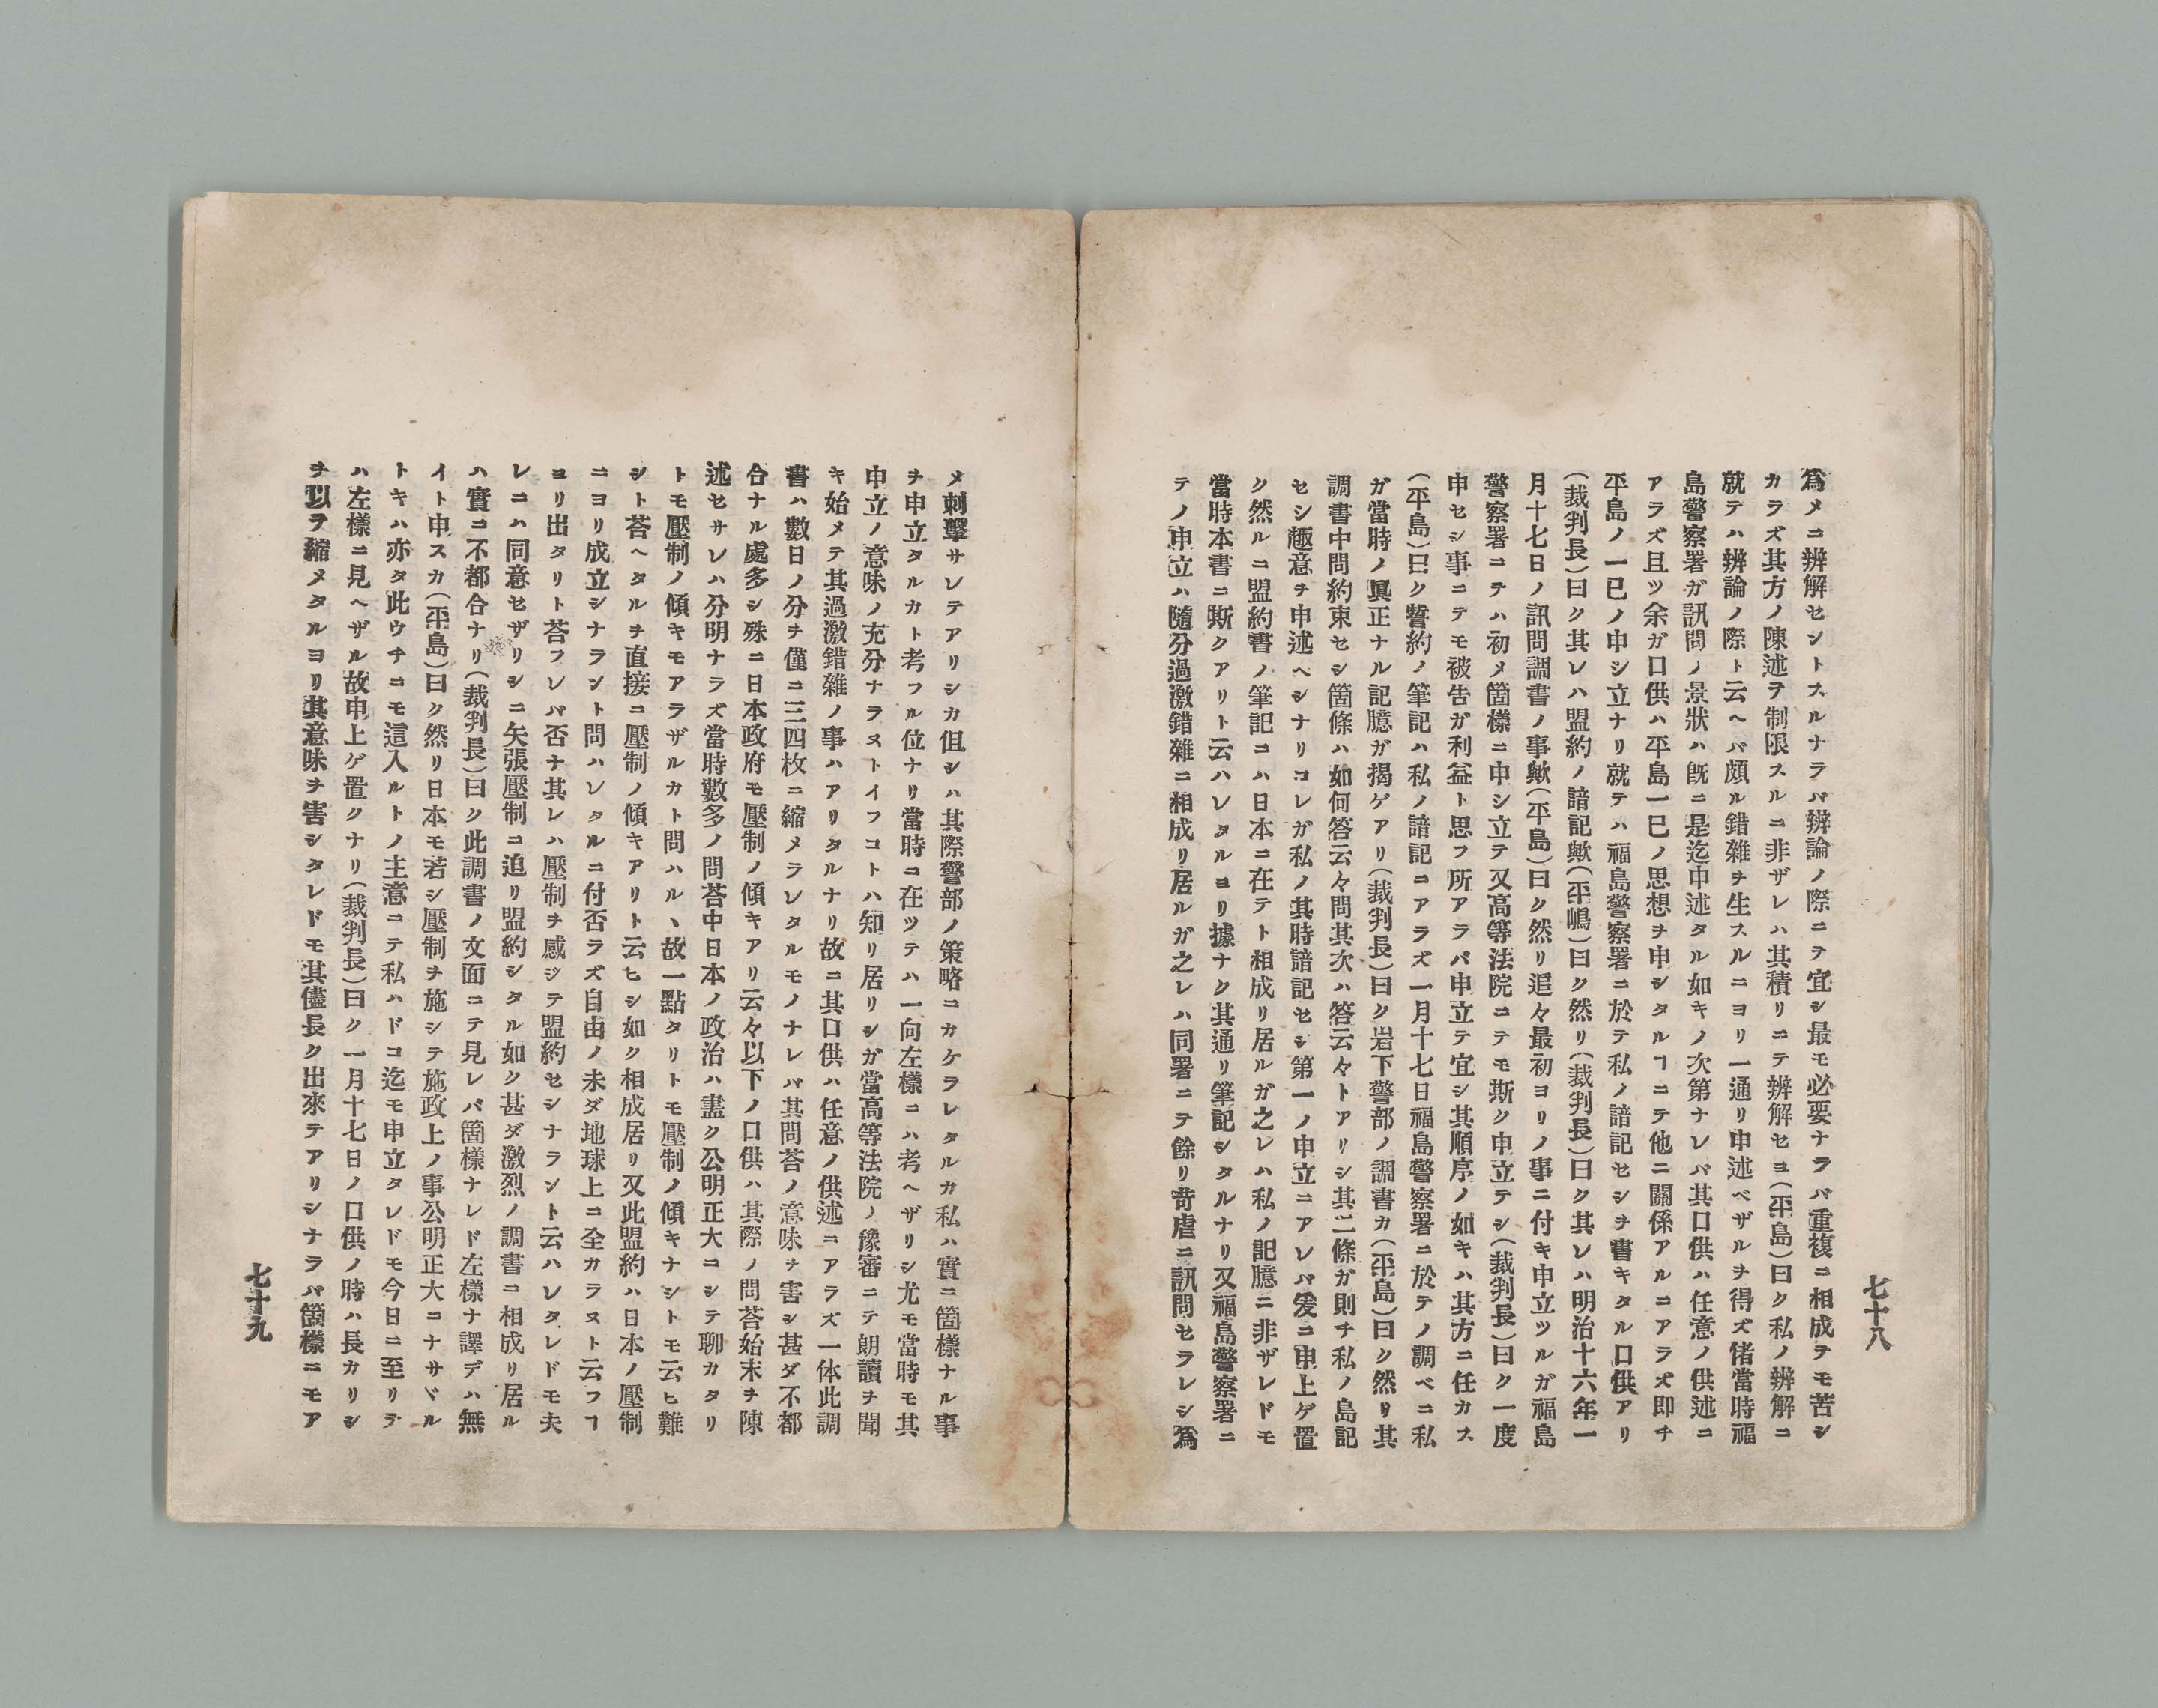 七十八
爲メニ辨解セントスルナラバ辨論ノ際ニテ宜シ最モ必要ナラバ重複ニ相成テモ苦シ
カラズ其方ノ陳述ヲ制限スルニ非ザレハ其積リニテ辨解セヨ(平島)曰ク私ノ辨解ニ
就テハ辨論ノ際ト云ヘバ頗ル錯雜ヲ生スルニヨリ一通リ申述ベザルヲ得ズ偖當時福
島警察署ガ訊問ノ景狀ハ旣ニ是迄申述タル如キノ次第ナレバ其口供ハ任意ノ供述ニ
アラズ且ツ余ガ口供ハ平島一巳ノ思想ヲ申シタルヿニテ他ニ關係アルニアラズ即チ
平島ノ一巳ノ申シ立ナリ就テハ福島警察署ニ於テ私ノ諳記セシヲ書キタル口供アリ
(裁判長)曰ク其レハ盟約ノ諳記歟(平嶋)曰ク然リ(裁判長)曰ク其レハ明治十六年一
月十七日ノ訊問調書ノ事歟(平島)曰ク然リ追々最初ヨリノ事ニ付キ申立ツルガ福島
警察署ニテハ初メ箇樣ニ申シ立テ又高等法院ニテモ斯ク申立テシ(裁判長)曰ク一度
申セシ事ニテモ被告ガ利益ト思フ所アラバ申立テ宜シ其順序ノ如キハ其方ニ任カス
(平島)曰ク誓約ノ筆記ハ私ノ諳記ニアラズ一月十七日福島警察署ニ於テノ調ベニ私
ガ當時ノ眞正ナル記臆ガ揭ゲアリ(裁判長)曰ク岩下警部ノ調書カ(平島)曰ク然リ其
調書中問約束セシ箇條ハ如何答云々問其次ハ答云々トアリシ其二條ガ則チ私ノ島記
セシ趣意チ申述ヘシナリコレガ私ノ其時諳記セシ第一ノ申立ニアレバ爰ニ申上ゲ置
ク然ルニ盟約書ノ筆記ニハ日本ニ在テト相成リ居ルガ之レハ私ノ記臆ニ非ザレドモ
當時本書ニ斯クアリト云ハレタルヨリ據ナク其通リ筆記シタルナリ又福島警察署ニ
テノ申立ハ隨分過激錯雜ニ相成リ居ルガ之レハ同署ニテ餘リ苛虐ニ訊問セラレシ爲
メ刺擊サレテアリシカ伹シハ其際警部ノ策略ニカケラレタルカ私ハ實ニ箇樣ナル事
ヲ申立タルカト考フル位ナリ當時ニ在ツテハ一向左樣ニハ考ヘザリシ尤モ當時モ其
申立ノ意味ノ充分ナラヌトイフコトハ知リ居リシガ當高等法院ノ豫審ニテ朗讀ヲ聞
キ始メテ其過激錯雜ノ事ハアリタルナリ故ニ其口供ハ任意ノ供述ニアラズ一体此調
書ハ數日ノ分ヲ僅ニ三四枚ニ縮メラレタルモノナレバ其問荅ノ意味ヲ害シ甚ダ不都
合ナル處多シ殊ニ日本政府モ壓制ノ傾キアリ云々以下ノ口供ハ其際ノ問荅始末ヲ陳
述セサレハ分明ナラズ當時數多ノ問荅中日本ノ政治ハ盡ク公明正大ニシテ聊カタリ
トモ壓制ノ傾キモアラザルカト問ハルヽ故一點タリトモ壓制ノ傾キナシトモ云ヒ難
シト荅ヘタルヲ直接ニ壓制ノ傾キアリト云ヒシ如ク相成居リ又此盟約ハ日本ノ壓制
ニヨリ成立シナラント問ハレタルニ付否ラズ自由ノ未ダ地球上ニ全カラヌト云フヿ
ヨリ出タリト荅フレバ否ナ其レハ壓制ヲ感ジテ盟約セシナラント云ハレタレドモ夫
レニハ同意セザリシニ矢張壓制コ迫リ盟約シタル如ク甚ダ激烈ノ調書ニ相成リ居ル
ハ實ニ不都合ナリ(裁判長)曰ク此調書ノ文面ニテ見レバ箇樣ナレド左樣ナ譯デハ無
イト申スカ(平島)曰ク然リ日本モ若シ壓制ヲ施シテ施政上ノ事公明正大ニナサヾル
トキハ亦タ此ウチニモ這入ルトノ主意ニテ私ハドコ迄モ申立タレドモ今日ニ至リテ
ハ左樣ニ見ヘザル故申上ゲ置クナリ(裁判長)曰ク一月十七日ノ口供ノ時ハ長カリシ
ヲ以テ縮メタルヨリ其意味ヲ害シタレドモ其儘長ク出來テアリシナラバ箇樣ニモア
七十九